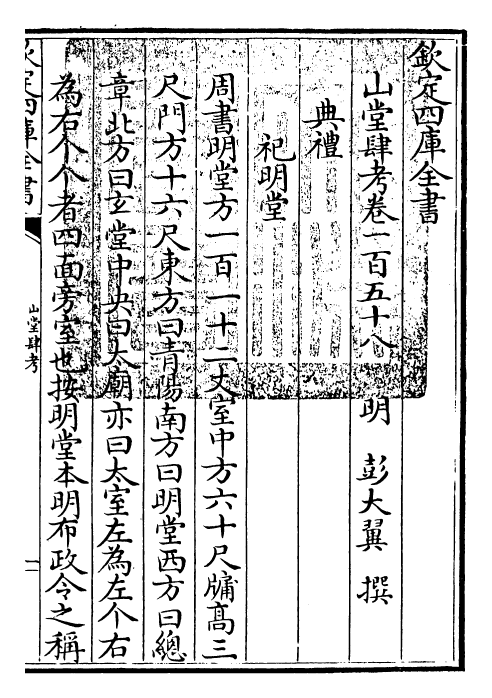 欽定四庫全書
山堂肆考卷一百五十八　明　彭大翼　撰
典禮
祀明堂
周書明堂方一百一十二丈室中方六十尺牖高三
尺門方十六尺東方曰青陽南方曰明堂西方曰總
章北方曰玄堂中央曰太廟亦曰太室左為左个右
為右个个者四面旁室也按明堂本明布政令之稱
欽定四庫全書
山堂肆考
一